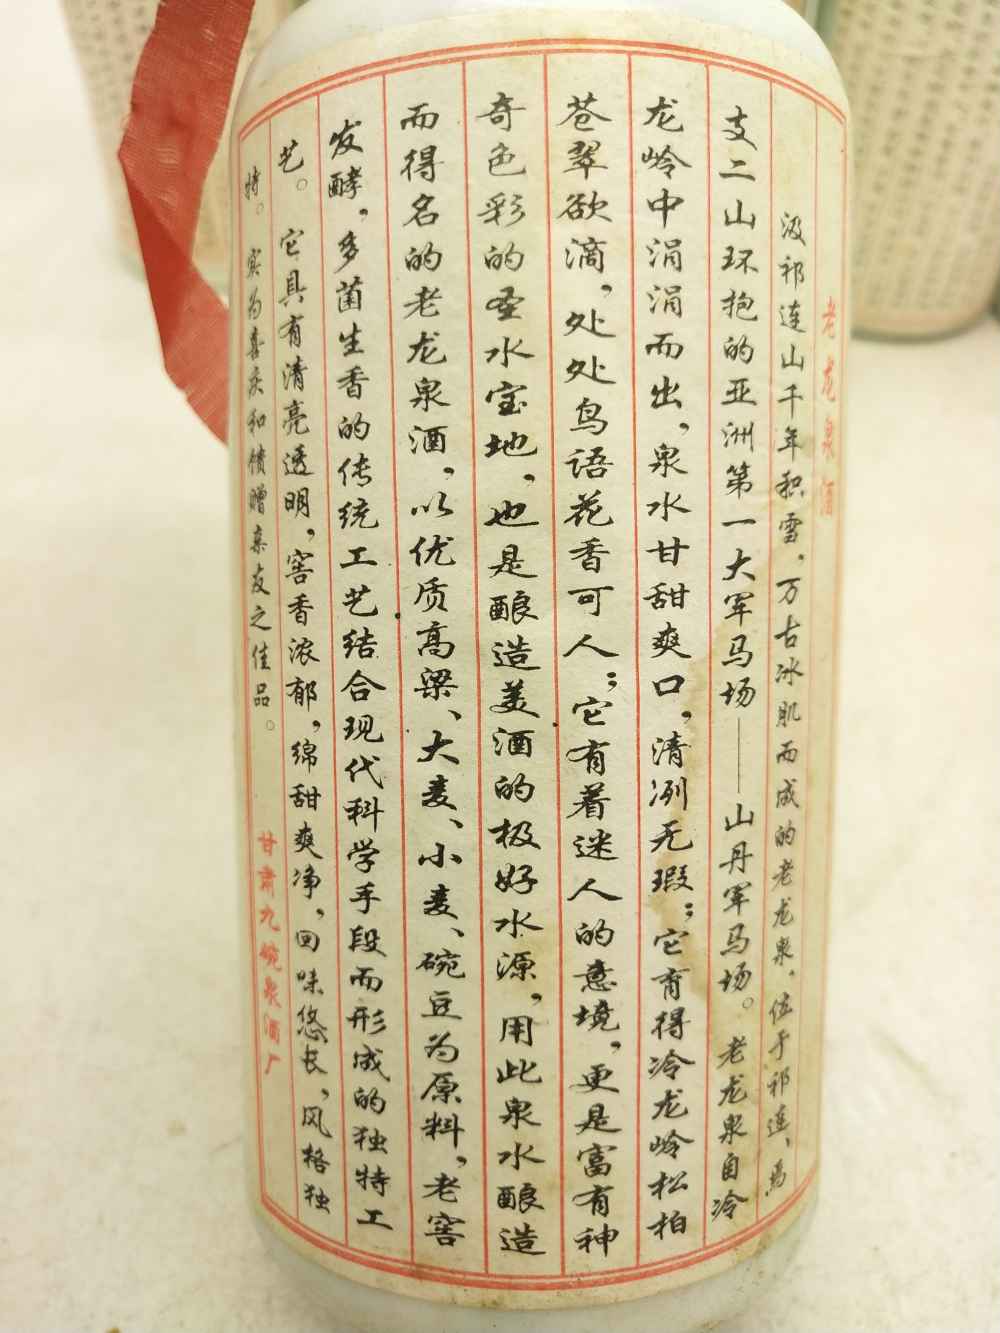 老龙泉酒
汲祁连山千年积雪，万古冰肌而成的老龙泉，位于祁连、焉
支二山环抱的亚洲第一大军马场——山丹军马场。老龙泉自冷
龙岭中涓涓而出，泉水甘甜爽口，清冽无瑕；它育得冷龙岭松柏
苍翠欲滴，处处鸟语花香可人；它有着迷人的意境，更是富有神
奇色彩的圣水宝地，也是酿造美酒的极好水源，用此泉水酿造
而得名的老龙泉酒，以优质高粱、大麦、小麦、碗豆为原料，老窖
发酵，多菌生香的传统工艺结合现代科学手段而形成的独特工
艺。它具有清亮透明，窖香浓郁，绵甜爽净，回味悠长，风格独
特。实为喜庆和馈赠亲友之佳品。
甘肃九碗泉酒厂